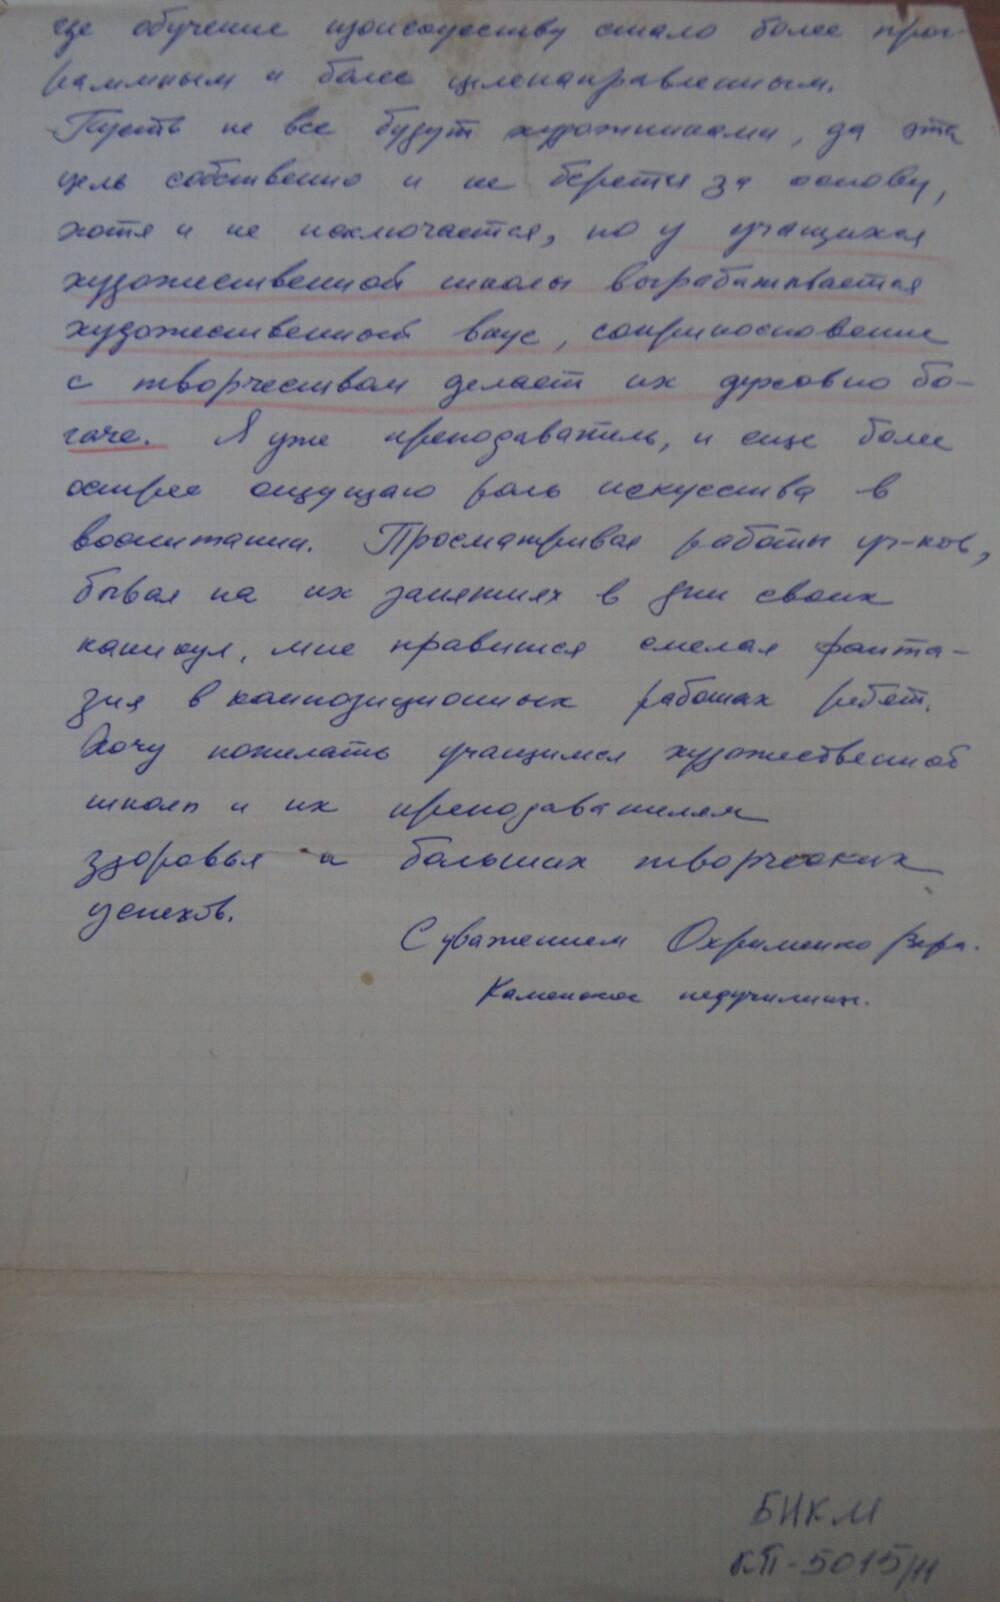 где обучение изоискусству стало более прог-
раммным и более целенаправленным.
Пусть не все будут художниками, да эта
цель собственно и не берется за основу,
хотя и не исключается, но у учащихся
художественной школы вырабатывается
художественный вкус, соприкосновение
с творчеством делает их духовно бо-
гаче. Я уже преподаватель, и еще более
острее ощущаю роль искусства в
воспитании. Просматривая работы уч-ков,
бывая на их занятиях в дни своих
каникул, мне нравится смелая фанта-
зия в композиционных работах ребят.
Хочу пожелать учащимся художественной
школы и их преподавателям
здоровья и больших творческих
успехов.
С уважением Охрименко Вера.
Каменское педучилище.
БНКМ
КП-5015/11